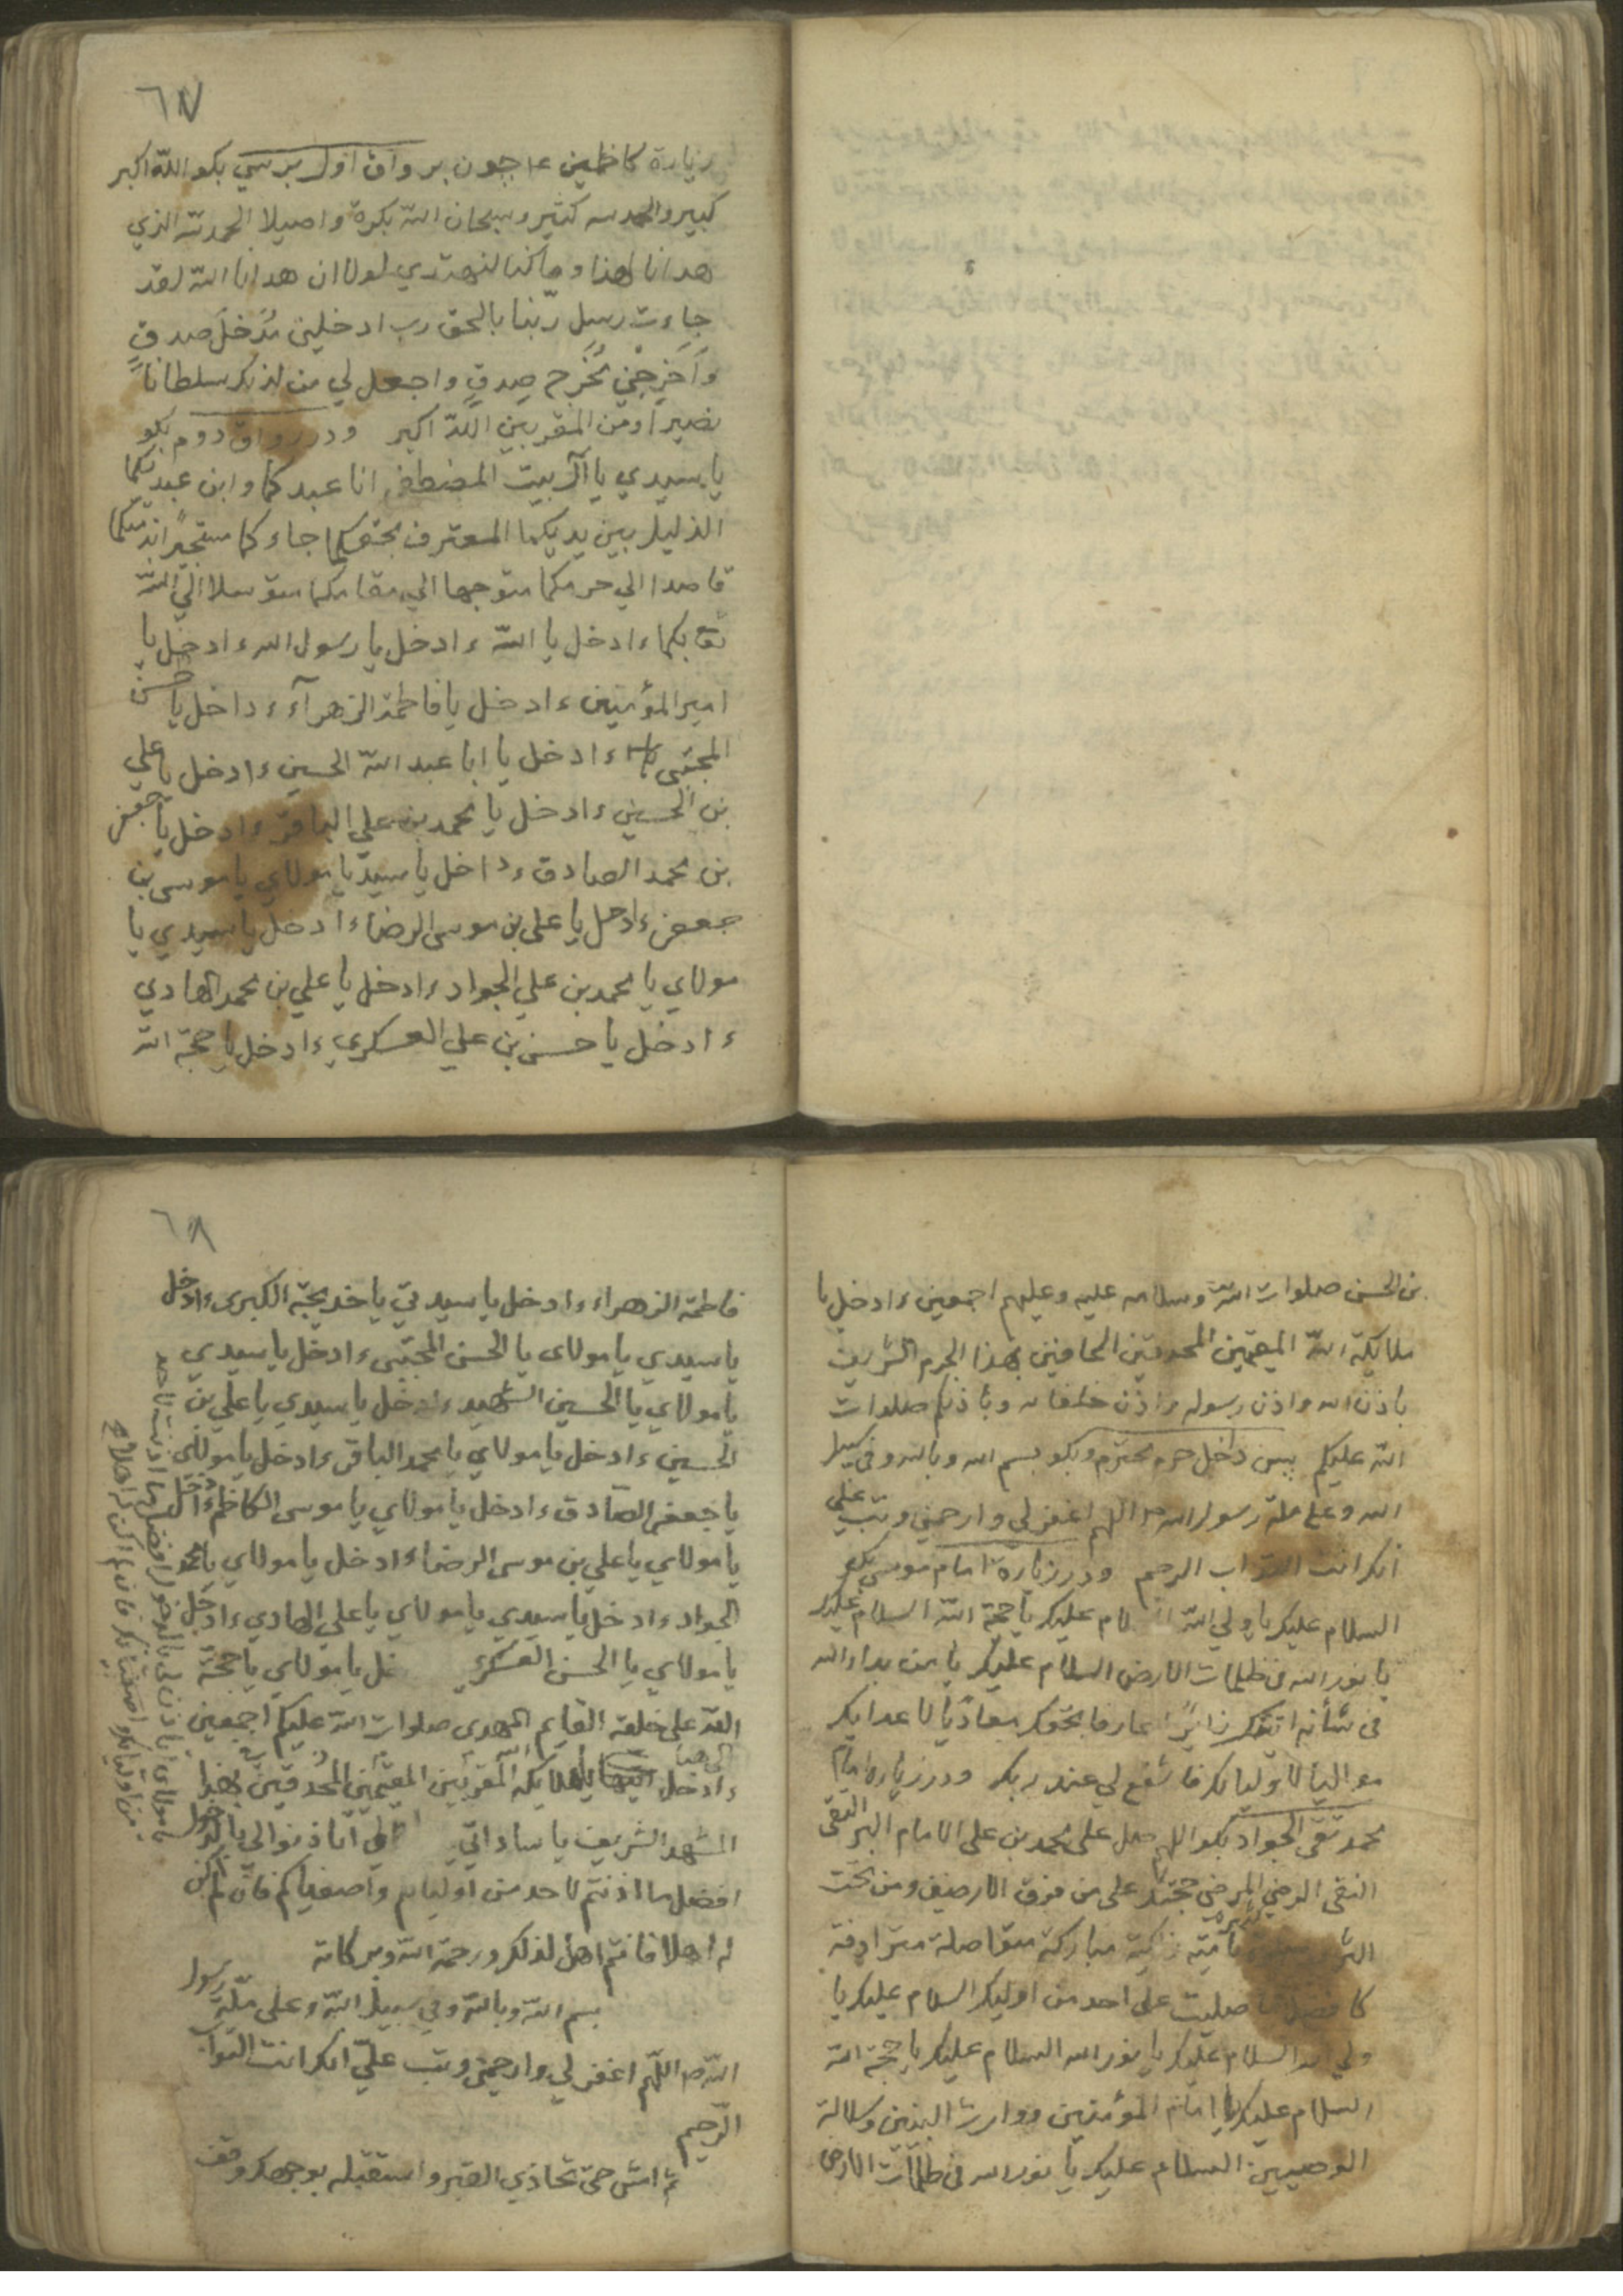 ٦٧
زيارة كاظمين ع١ چون برواق اول برسي بكو الله اكبر
كبير والحمد لله كثير وسبحان الله بكرة واصيلا الحمد لله الذي
هدانا لهذا وما كنا لنهتدي لولا ان هدانا الله لقد
جاءت رسل ربّنا بالحق رب ادخلني مُدْخَلَ صدقٍ
وَاَخرِجْني مُخْرج صِدقٍ واجعل لي من لدنك سلطاناً
نصيراً ومن المقربين اللّه اكبر ودر رواق دوم بكو
يا سيدي يا آل بيت المصطفى انا عبدكما وابن عبديكما
الذليل بين يديكما المعترف بحقكما جاءكما مستجيراً بذمتكما
قاصدا الي حرمكما متوجها الي مقامكما متوسلا الي اللّه
تعا بكما ءادخل يا اللّه ءادخل يا رسول الله ءادخل يا
امير المؤمنين ءادخل يا فاطمة الزهرآء ءداخل يا حسن
المجتبى ءادخل يا ابا عبد اللّه الحسين ءادخل يا علي
بن الحسين ءادخل يا محمد بن علي الباقر ءادخل يا جعفر
بن محمد الصادق ءداخل يا سيد يا مولاي يا موسى بن
جعفر ءادخل يا علي بن موسى الرضاء ءادخل يا سيدي يا
مولاي يا محمد بن علي الجواد ءادخل يا علي بن محمد الهادي
ءادخل يا حسن بن علي العسكري ءادخل يا حجة اللّه
بن الحسن صلوات اللّه وسلامه عليه وعليهم اجمعين ءادخل يا
ملايكة اللّه المقيمين المحدقين الحافين بهذا الحرم الشريف
باذن الله واذن رسوله واذن خلفائه وباذنكم صلوات
اللّه عليكم پس داخل حرم محترم وبكو بسم الله وبالله وفي سبيل
الله وعلى ملة رسول الله ص اللهم اغفر لي وارحمني وتب علي
انك انت التواب الرحيم ودر زيارة امام موسى بكو
السلام عليك يا ولي اللّه السلام عليك يا حجة اللّه السلام عليك
يا نور الله في ظلمات الارض السلام عليك يا من بدا لله
في شأنه اتيتك زائراً عارفا بحقك معادياً لاعدايك
مواليا لاوليايك فاشفع لي عند ربك ودر زياره امام
محمد تقي الجواد بكو اللهم صل على محمد بن على الامام البر التقى
النقى الرضي المرضي وحجتك على من فوق الارضين ومن تحت
الثرى تامّة زاكية مباركة متواصلة مترادفة
كافضل ما صليت على احد من اوليك السلام عليك يا
ولي الله السلام عليك يا نور الله السلام عليك يا حجة اللّه
السلام عليك يا امام المؤمنين ووارث النبيين وسلالة
الوصيين السلام عليك يا نور الله في ظلمات الارض
٦٨
فاطمة الزهراء ءادخل يا سيدتي يا خديجة الكبرى ءادخل
يا سيدي يا مولاى يا الحسن المجتبى ءادخل يا سيدي
يا مولاي يا الحسين الشهيد ءادخل يا سيدي يا علي بن
الحسين ءادخل يا مولاي يا محمد الباقر ءادخل يا مولاى
يا جعفر الصّادق ءادخل يا مولاي يا موسى الكاظم ءادخل
يا مولاي يا علي بن موسى الرضاء ءادخل يا مولاي يا محمد
الجواد ءادخل يا سيدي يا مولاي يا علي الهادي ءادخل
يا مولاي يا الحسن العسكري خل يا مولاي يا حجة
اللّه على خلقه القايم المهدى صلوات اللّه عليكم اجمعين
ءادخل يا ملايكة اللّه المقربين المقيمين المحدقين بهذا
المشهد الشريف يا ساداتي فاذنوا لي بالدخول
افضل ما اذنتم لاحد من اوليايه واصفياكم فان لم اكن
له اهلا فانتم اهل لذلك ورحمة اللّه وبركاته
بسم اللّه وباللّه وفي سبيل اللّه وعلى ملّة رسول
اللّه ص اللّهم اغفر لي وارحمني وتب عليّ انك انت التواب
الرّحيم
ثم امش حتى تحاذي القبر واستقبله بوجهك وقف